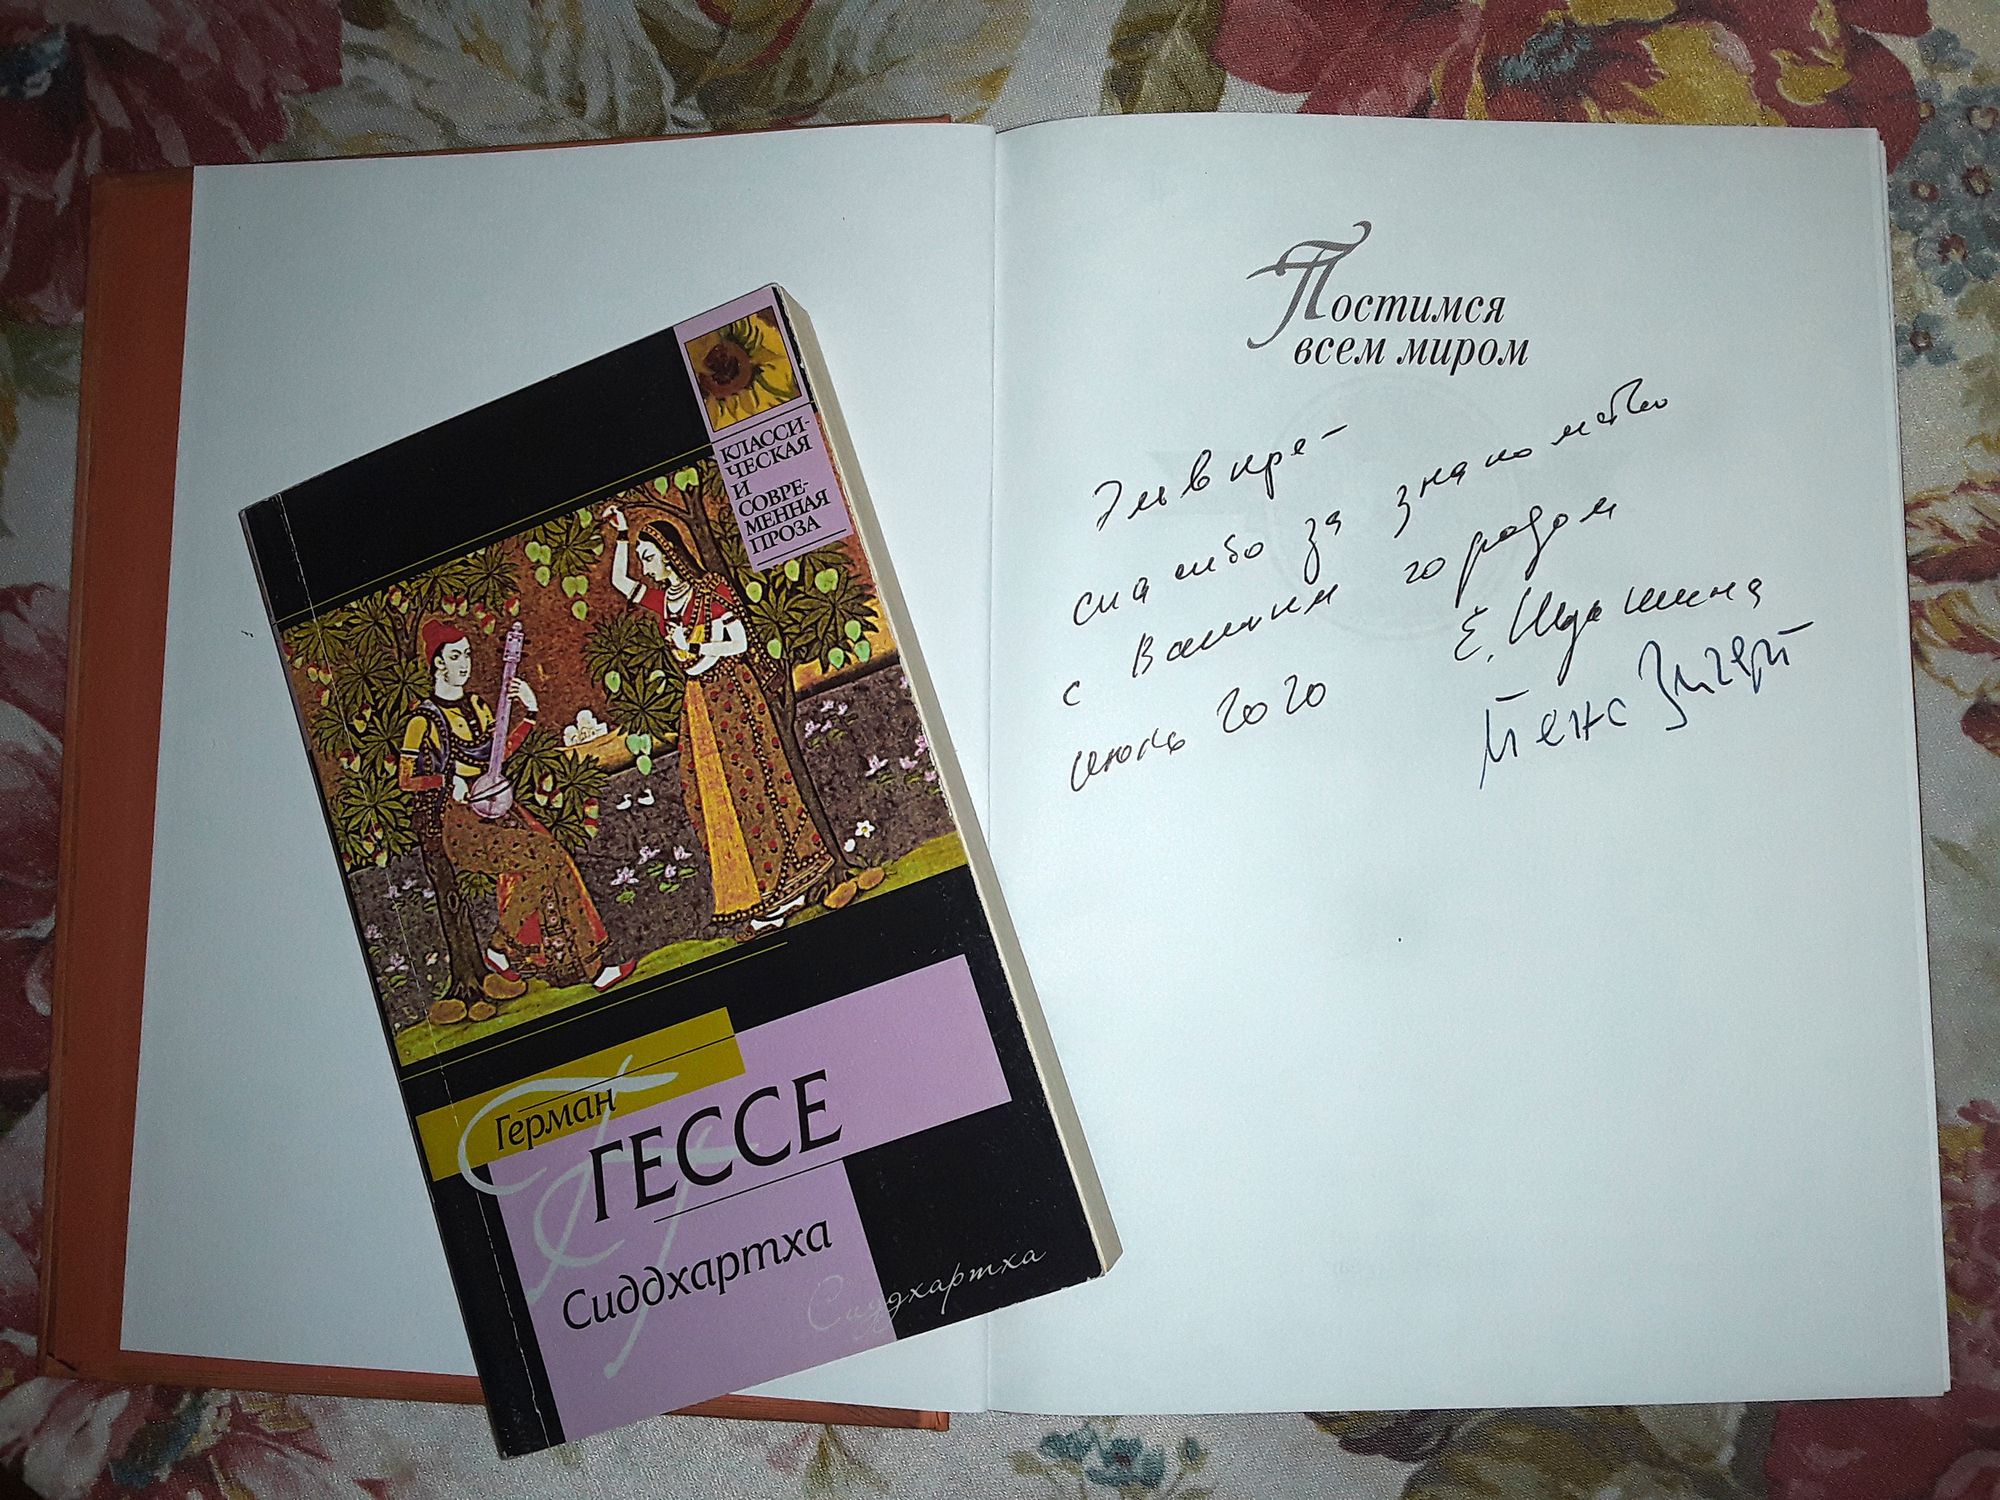 КЛАССИ-
ЧЕСКАЯ
И
СОВРЕ-
МЕННАЯ
ПРОЗА
Герман
ГЕССЕ
Сиддхартха
Сиддхартха
Постимся
всем миром
Эльвире –
спасибо за знакомство
с Вашим городом
июль 2020
Е. Шдашина
Йенс Зигерт